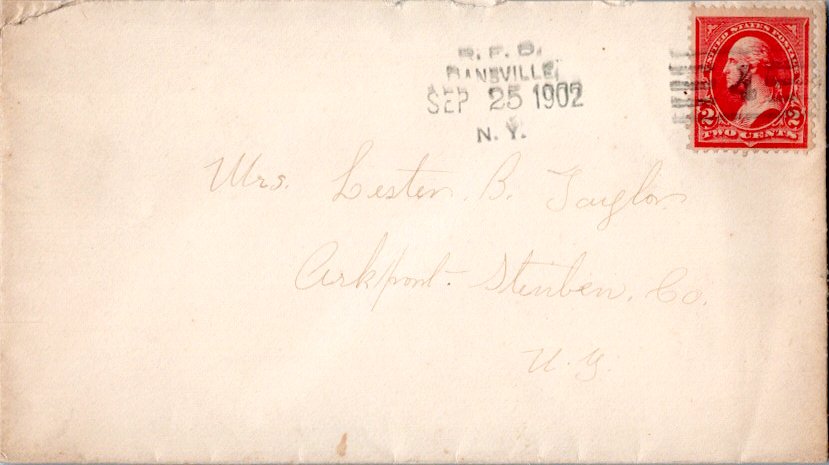 R. F. D.
DANSVILLE,
SEP 25 1902
N. Y.
UNITED STATES POSTAGE
2 2
TWO CENTS
Mrs. Lester. B. Taylor.
Arkport. Steuben. Co.
N. Y.